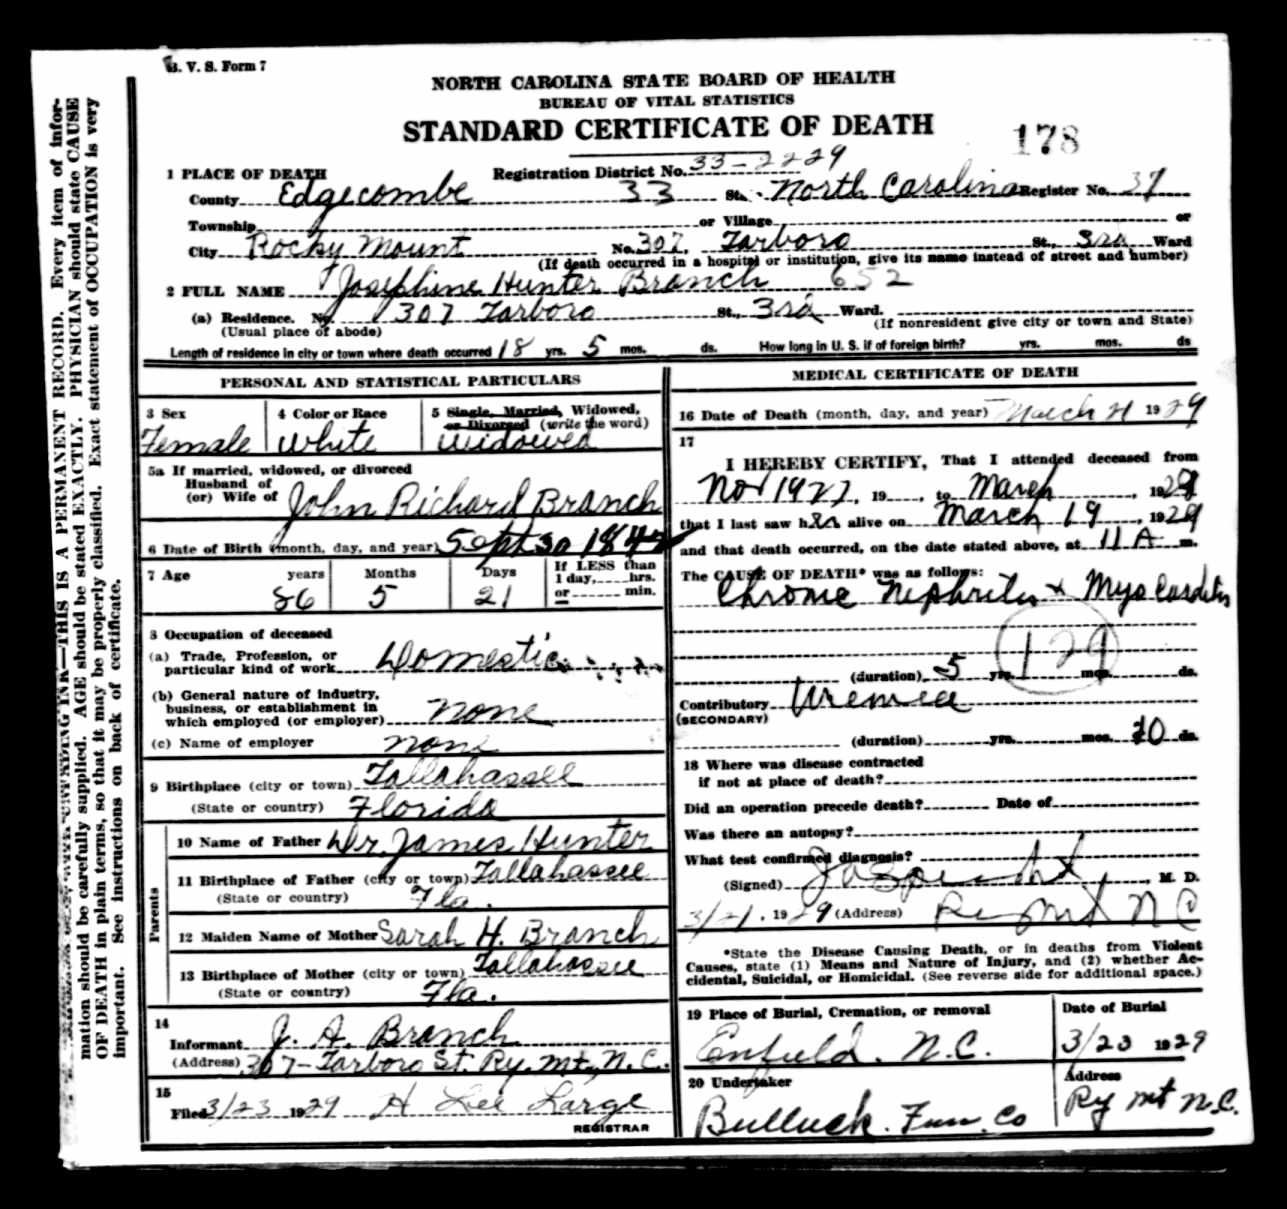 B. V. S. Form 7
NORTH CAROLINA STATE BOARD OF HEALTH
BUREAU OF VITAL STATISTICS
STANDARD CERTIFICATE OF DEATH
178
1 PLACE OF DEATH Registration District No. 33-2229
County Edgecombe 33 St. North Carolina Register No. 37
Township or Village or
City Rocky Mount No. 307, Tarboro St., 3rd Ward
(If death occurred in a hospital or institution, give its name instead of street and number)
2 FULL NAME Josephine Hunter Branch 652
(a) Residence. No. 307 Tarboro St., 3rd Ward.
(Usual place of abode) (If nonresident give city or town and State)
Length of residence in city or town where death occurred 18 yrs. 5 mos. ds. How long in U. S. if of foreign birth? yrs. mos. ds
PERSONAL AND STATISTICAL PARTICULARS
3 Sex Female
4 Color or Race White
5 Single, Married, Widowed,
or Divorced (write the word)
Widowed
5a If married, widowed, or divorced
Husband of
(or) Wife of John Richard Branch
6 Date of Birth (month, day, and year) Sept 30 1842
7 Age years Months Days If LESS than
1 day, hrs.
86 5 21 or min.
8 Occupation of deceased
(a) Trade, Profession, or
particular kind of work Domestic
(b) General nature of industry,
business, or establishment in
which employed (or employer) none
(c) Name of employer none
9 Birthplace (city or town) Tallahassee
(State or country) Florida
Parents
10 Name of Father Dr. James Hunter
11 Birthplace of Father (city or town) Tallahassee
(State or country) Fla.
12 Maiden Name of Mother Sarah H. Branch
13 Birthplace of Mother (city or town) Tallahassee
(State or country) Fla.
14
Informant J. A. Branch
(Address) 307-Tarboro St. Ry. Mt., N.C.
15
Filed 3/23 1929 H Lee Large
REGISTRAR
MEDICAL CERTIFICATE OF DEATH
16 Date of Death (month, day, and year) March 21 1929
17
I HEREBY CERTIFY, That I attended deceased from
Nov 1927, 19, to March, 1929
that I last saw her alive on March 19, 1929
and that death occurred, on the date stated above, at 11 A m.
The CAUSE OF DEATH* was as follows:
Chronic Nephritis + Myocarditis
129
(duration) 5 yrs. mos. ds.
Contributory Uremia
(SECONDARY)
(duration) yrs. mos. 10 ds.
18 Where was disease contracted
if not at place of death?
Did an operation precede death? Date of
Was there an autopsy?
What test confirmed diagnosis?
(Signed) , M. D.
3/21. 1929 (Address) Ry Mt N C
*State the Disease Causing Death, or in deaths from Violent
Causes, state (1) Means and Nature of Injury, and (2) whether Ac-
cidental, Suicidal, or Homicidal. (See reverse side for additional space.)
19 Place of Burial, Cremation, or removal Date of Burial
Enfield. N.C. 3/23 1929
20 Undertaker Address
Bulluck. Fun. Co Ry Mt N.C.
THIS IS A PERMANENT RECORD. Every item of infor-
mation should be carefully supplied. AGE should be stated EXACTLY. PHYSICIAN should state CAUSE
OF DEATH in plain terms, so that it may be properly classified. Exact statement of OCCUPATION is very
important. See instructions on back of certificate.